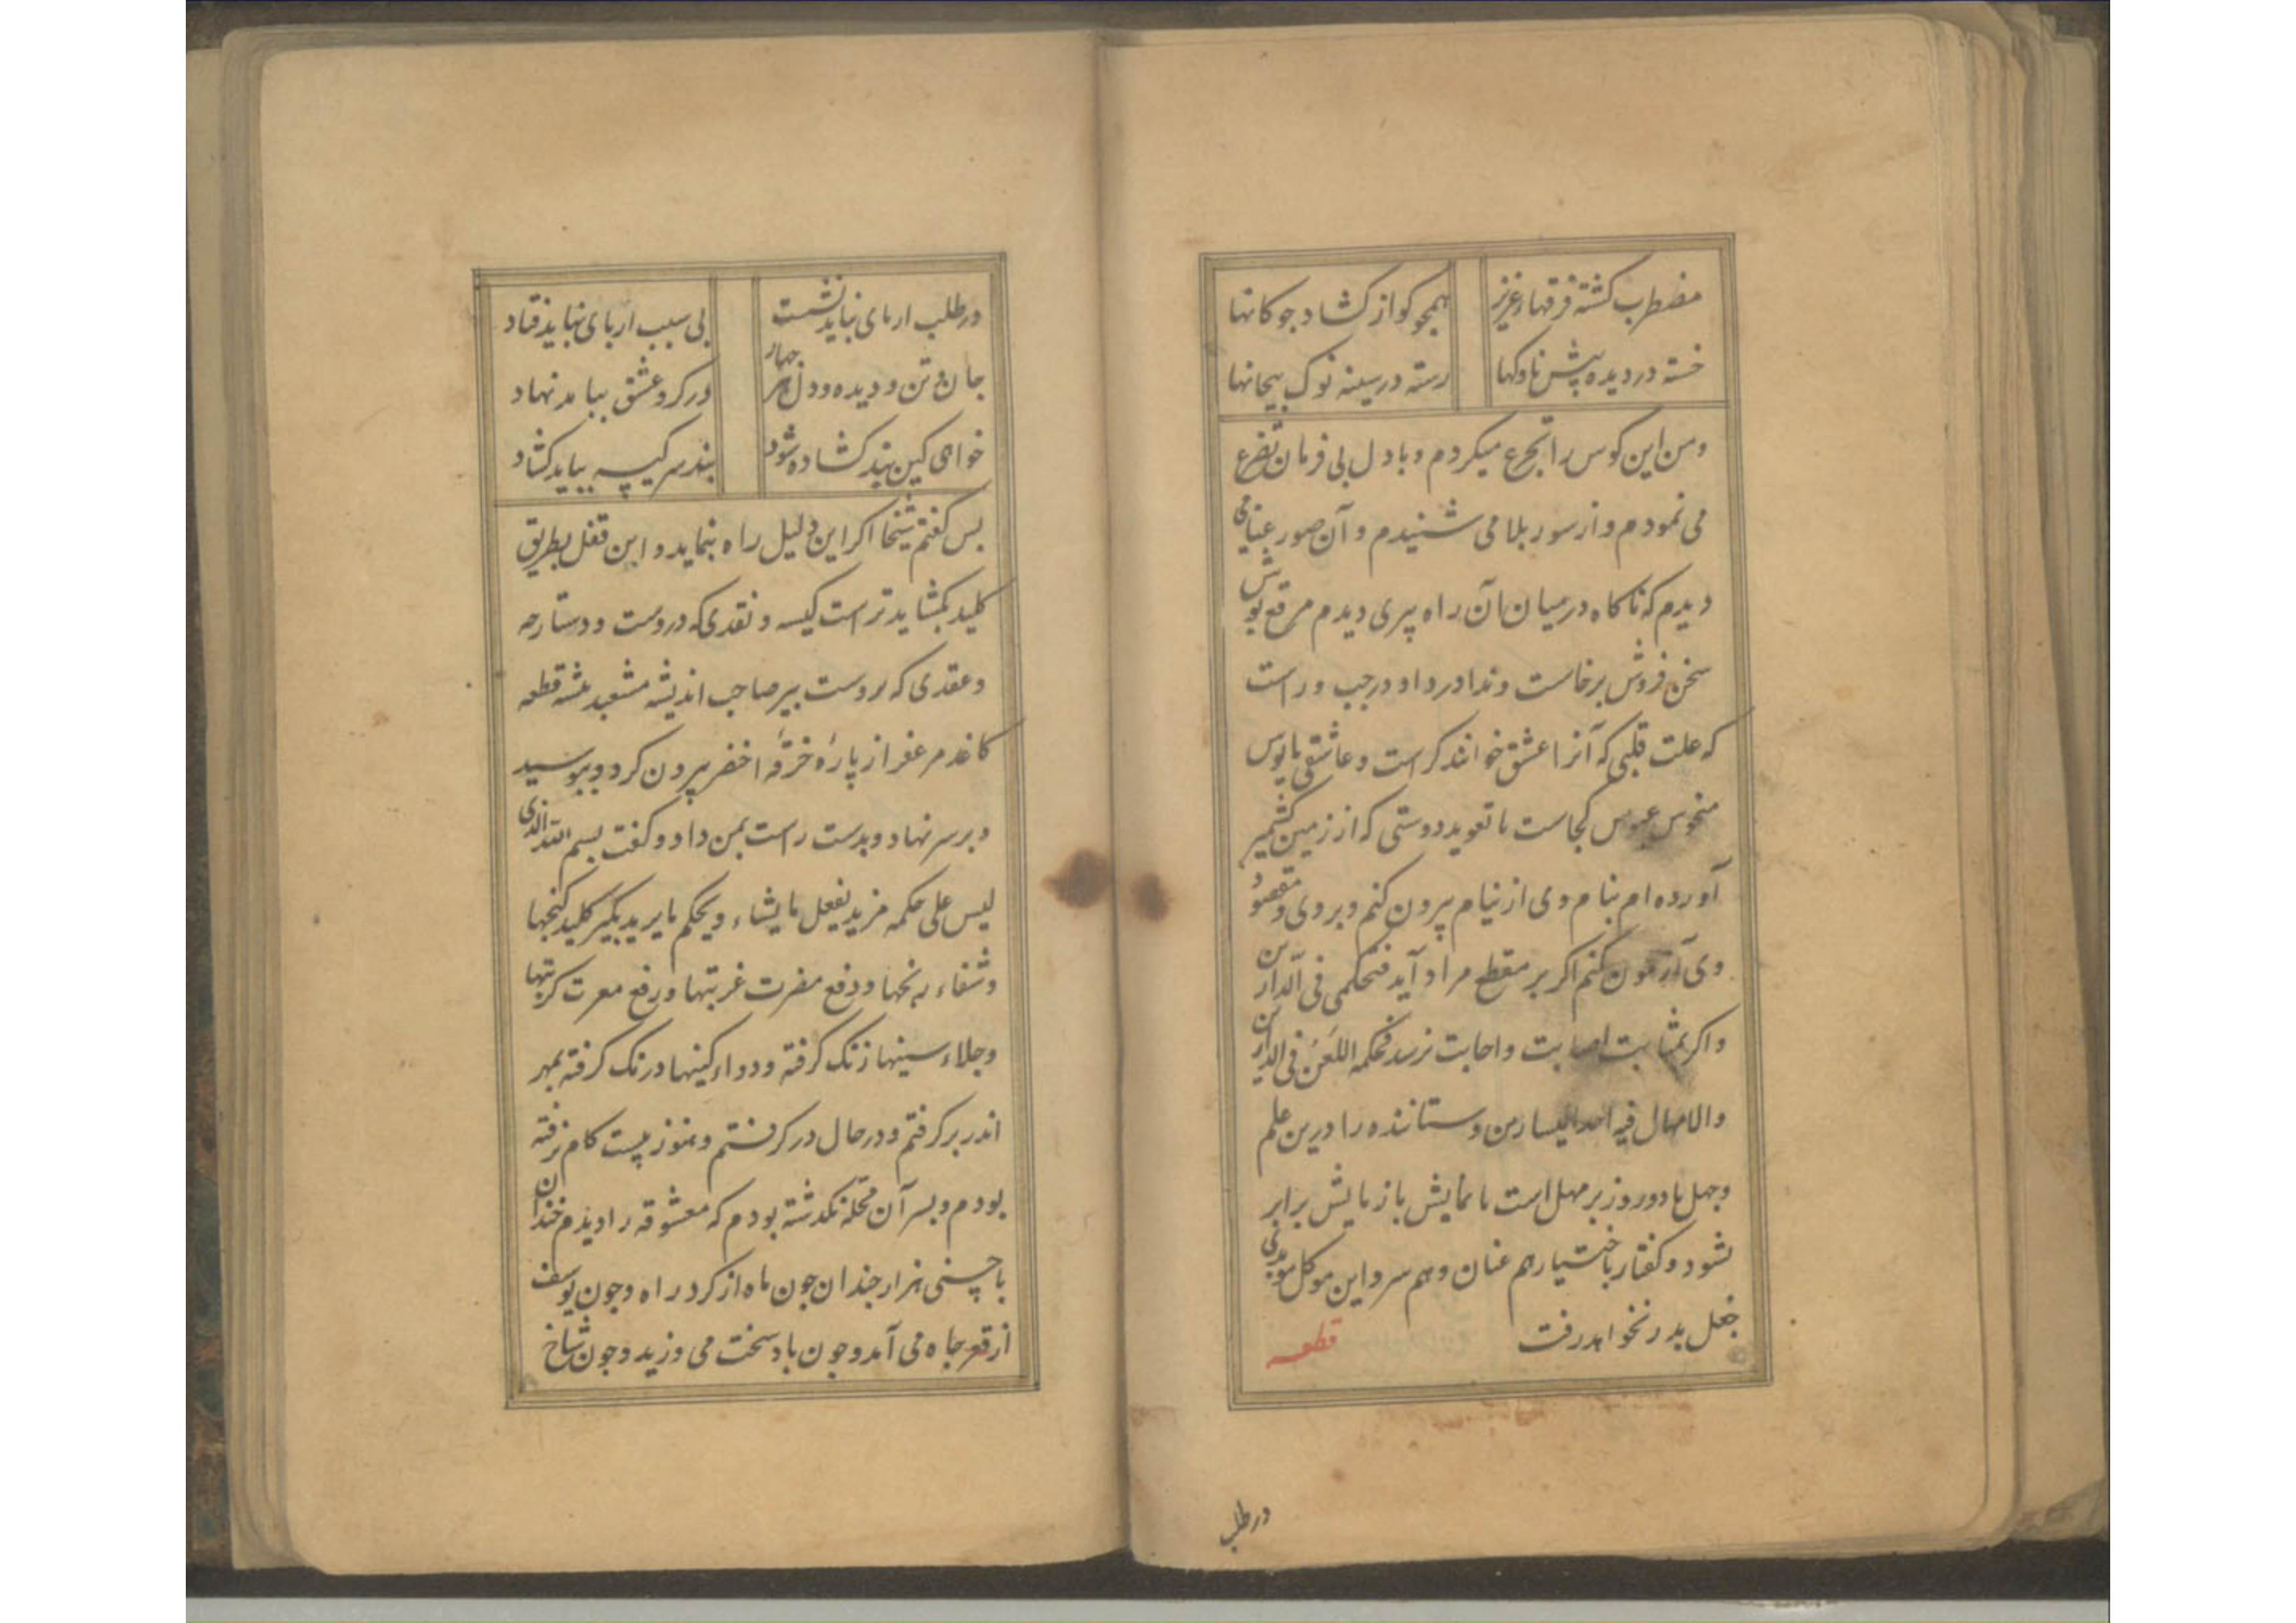 مضطرب کشته فرقهاء عزیز همچو کو از کشاد جوکانها
خسته در دیده پیش ناوکها رسته در سینه نوک پیکانها
ومن این کوس را تجرع میکردم و با دل بی فرمان تضرع
می نمودم و از سور بلا می شنیدم و آن صور عنا می
دیدم که ناکاه در میان آن راه پیری دیدم مرقع پوش
سخن فروش برخاست و ندا در داد و در جب و راست
که علت قلبی که آنرا عشق خوانند کر است و عاشقی مایوس
منحوس عبوس کجاست تا تعوید دوستی که از زمین کشمیر
آورده ام بنام وی از نیام بیرون کنم و بر وی و مقصود
وی آزمون کنم اکر بر مقطع مراد آید فتحکمی فی الدارین
واکر بمثابت اصابت و اجابت نرسد فحکمه اللعن فی الدارین
والامهال فیه احد الیسارین و ستاننده را درین علم
وجهل تا دو روز بر مهل است تا نمایش با زمایش برابر
شود و کفتار باختیار هم عنان و هم سر و این موکل
جعل بدر نخواهد رفت قطعه
در طلب
در طلب از پای نباید نشست بی سبب از پای نباید فتاد
جان و تن و دیده و دل هر جهار در کرو عشق بباید نهاد
خواهی کین بند کشاده شود بند سر کیسه بباید کشاد
بس کفتم شیخا اکر این دلیل راه بنماید و این قفل بطریق
کلید بکشاید تراست کیسه و نقدی که دروست و دستارجه
وعقدی که بروست پیر صاحب اندیشه مشعبد پیشه قطعه
کاغذ مزعفر از پارهٔ خرقهٔ اخضر بیرون کرد و ببوسید
و بر سر نهاد و بدست راست بمن داد و کفت بسم الله الذی
لیس علی حکمه مزید یفعل ما یشاء و یحکم ما یرید بکیر کلید کنجها
وشفاء رنجها و دفع مضرت غربتها و رفع معرت کربتها
وجلاء سینها زنک کرفته و دواء کینها درنک کرفته بمهر
اندر بر کرفتم و در حال در کرفتم و هنوز بیست کام نرفته
بودم و بسر آن محله نکذشته بودم که معشوقه را دیدم خندان
با حسنی هزار جندان جون ماه از کرد راه و جون یوسف
از قعر جاه می آمد و جون باد سخت می وزید و جون شاخ